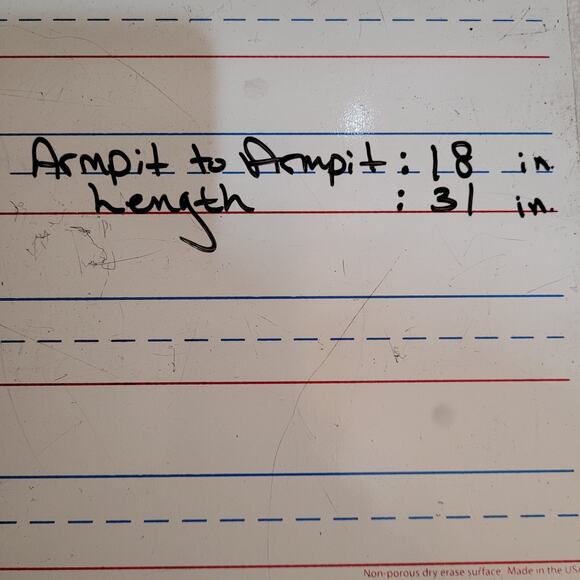 Armpit to Armpit : 18 in.
Length : 31 in.
Non-porous dry erase surface. Made in the US